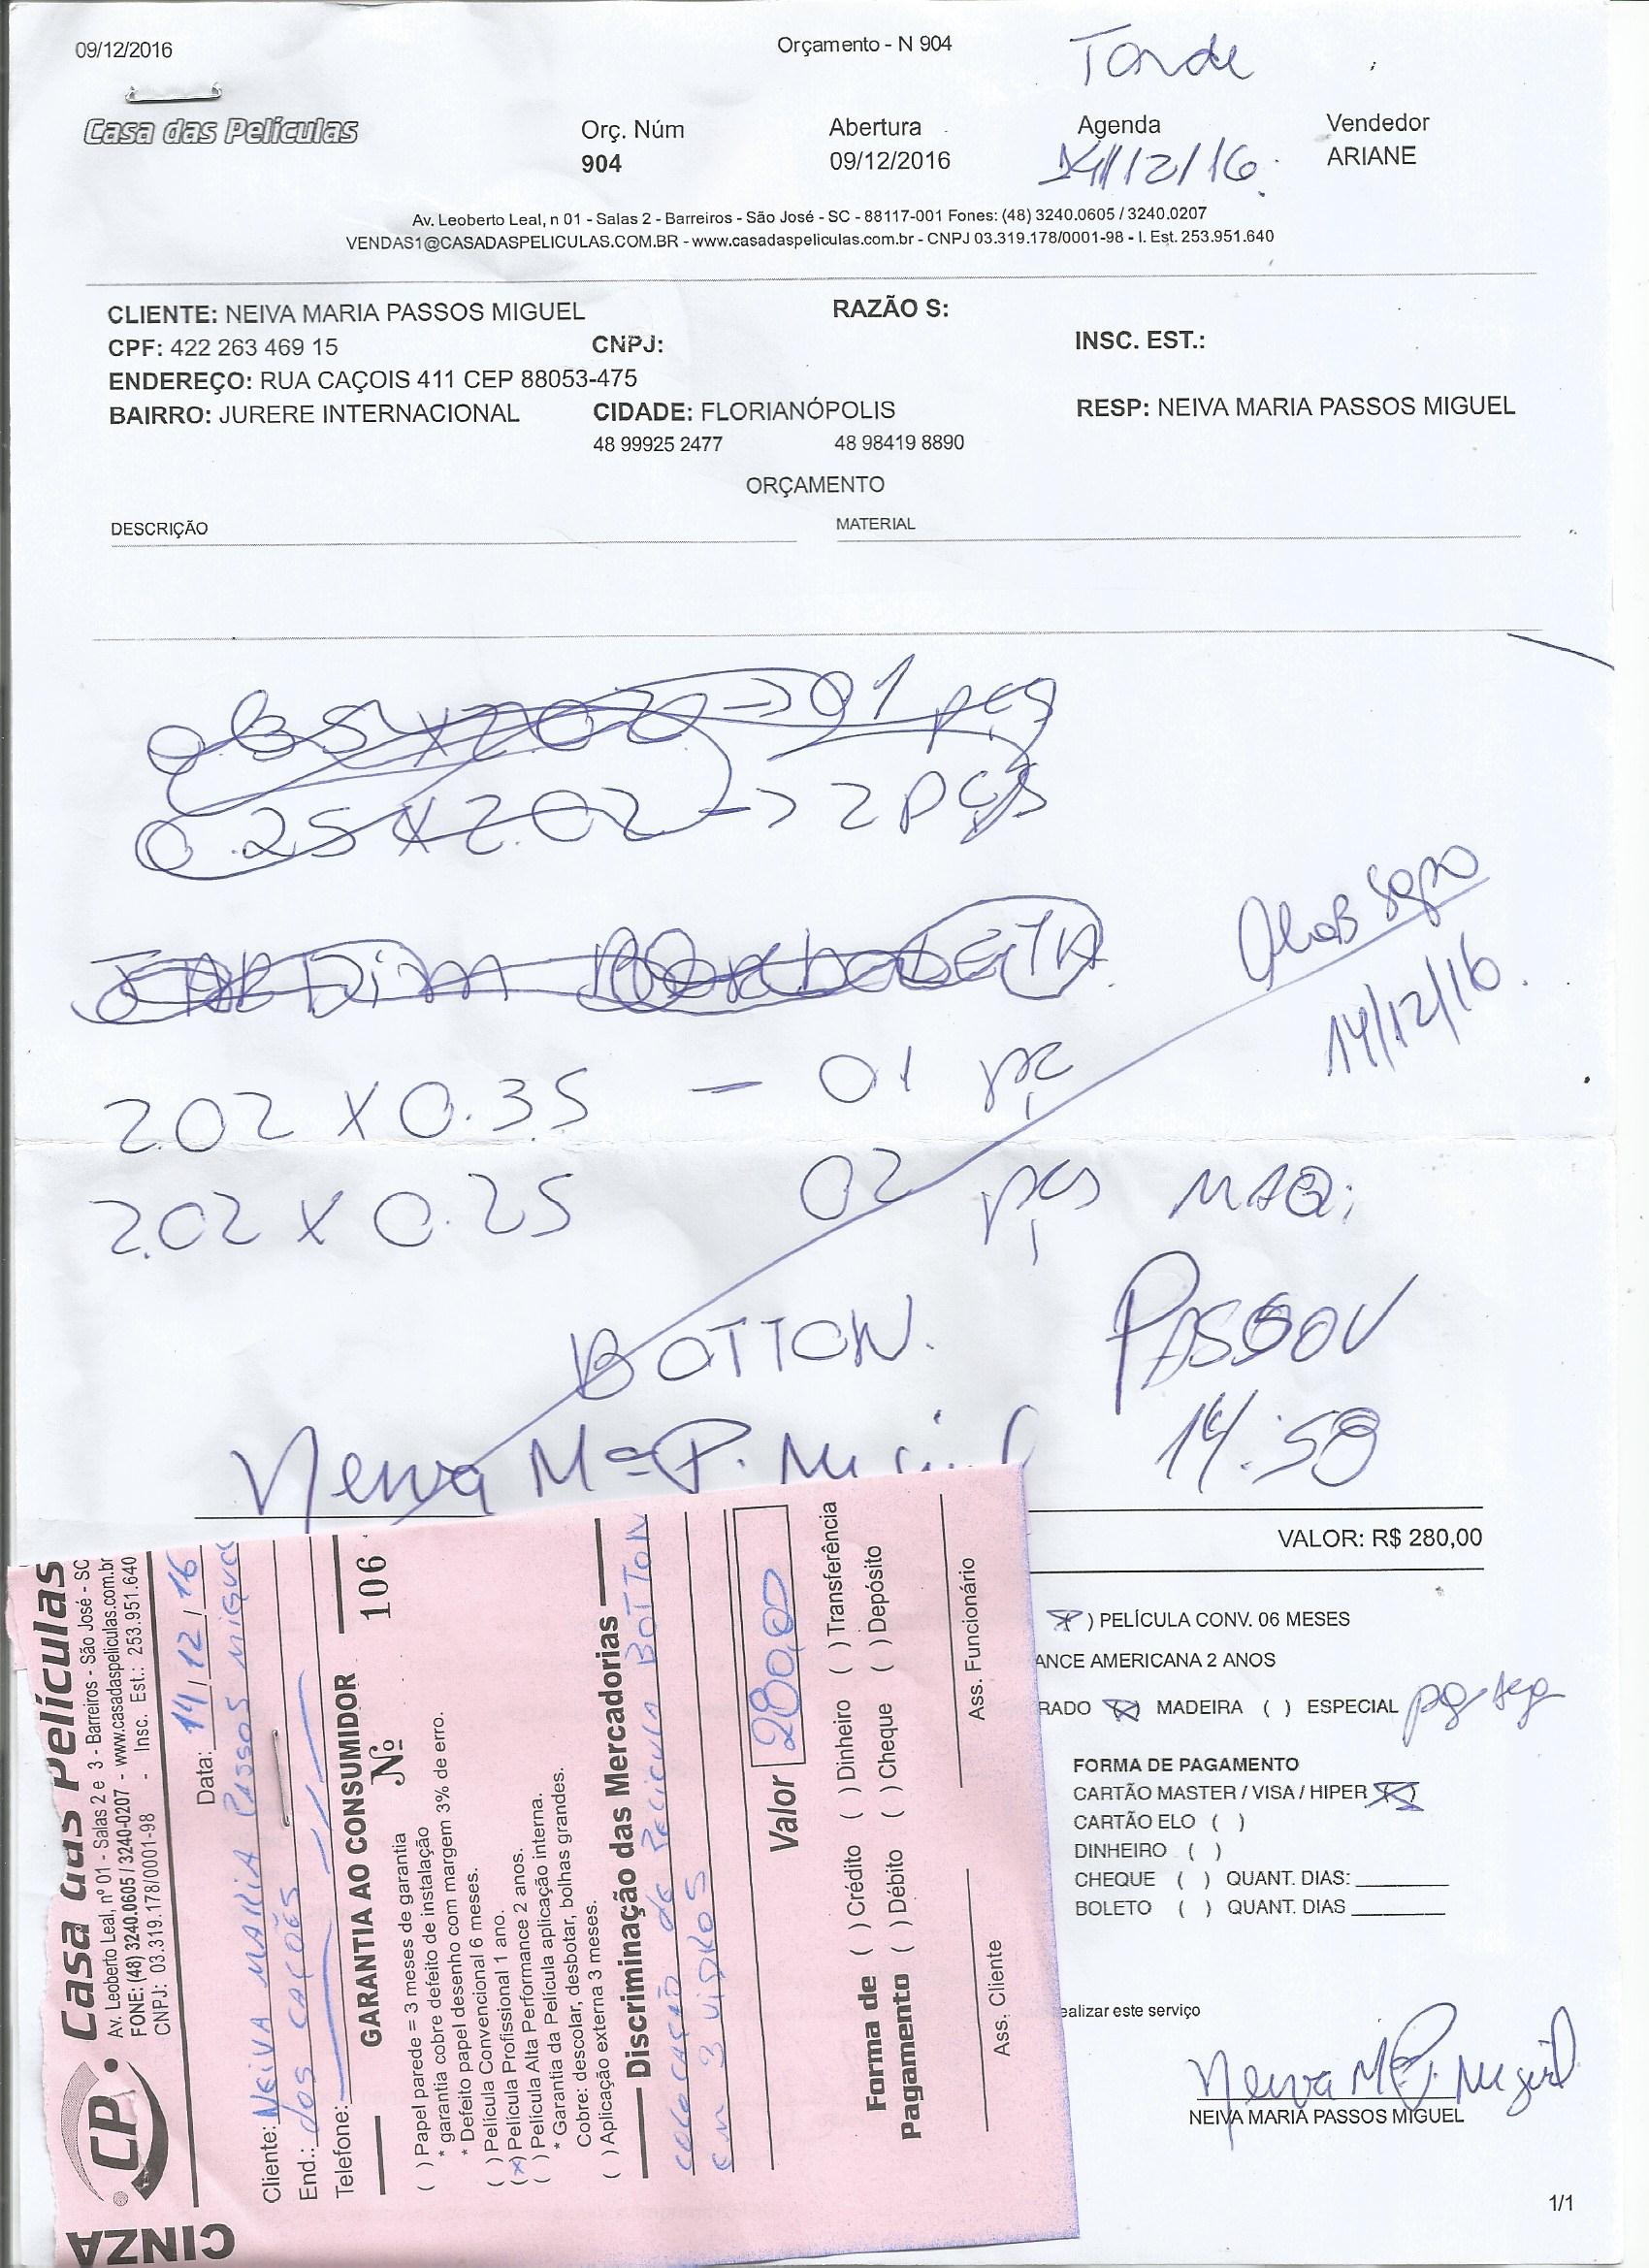 09/12/2016
Orçamento - N 904
Tarde
Casa das Películas
Orç. Núm
904
Abertura
09/12/2016
Agenda
14/12/16
Vendedor
ARIANE
Av. Leoberto Leal, n 01 - Salas 2 - Barreiros - São José - SC - 88117-001 Fones: (48) 3240.0605 / 3240.0207
VENDAS1@CASADASPELICULAS.COM.BR - www.casadaspeliculas.com.br - CNPJ 03.319.178/0001-98 - I. Est. 253.951.640
CLIENTE: NEIVA MARIA PASSOS MIGUEL
RAZÃO S:
CPF: 422 263 469 15
CNPJ:
INSC. EST.:
ENDEREÇO: RUA CAÇOIS 411 CEP 88053-475
BAIRRO: JURERE INTERNACIONAL
CIDADE: FLORIANÓPOLIS
RESP: NEIVA MARIA PASSOS MIGUEL
48 99925 2477
48 98419 8890
ORÇAMENTO
DESCRIÇÃO
MATERIAL
0.25 X 2.02 -> 2 pçs
14/12/16.
2.02 X 0.35 - 01 pç
2.02 X 0.25 02 pçs MAQ;
BOTTON.
PASSOU
14:58
Neiva Mª P. Miguel
VALOR: R$ 280,00
) PELÍCULA CONV. 06 MESES
ANCE AMERICANA 2 ANOS
RADO (X) MADEIRA ( ) ESPECIAL
FORMA DE PAGAMENTO
CARTÃO MASTER / VISA / HIPER (X)
CARTÃO ELO ( )
DINHEIRO ( )
CHEQUE ( ) QUANT. DIAS:
BOLETO ( ) QUANT. DIAS
ealizar este serviço
Neiva Mª P. Miguel
NEIVA MARIA PASSOS MIGUEL
1/1
CINZA
CP
Casa das Películas
Av. Leoberto Leal, nº 01 - Salas 2 e 3 - Barreiros - São José - SC
FONE: (48) 3240.0605 / 3240-0207 - www.casadaspeliculas.com.br
CNPJ: 03.319.178/0001-98 - Insc. Est.: 253.951.640
Data: 14/12/16
Cliente: NEIVA MARIA PASSOS MIGUEL
End.: dos CAÇÕES
Telefone:
GARANTIA AO CONSUMIDOR
Nº 106
( ) Papel parede = 3 meses de garantia
* garantia cobre defeito de instalação
* Defeito papel desenho com margem 3% de erro.
( ) Película Convencional 6 meses.
(x) Película Profissional 1 ano.
( ) Película Alta Performance 2 anos.
* Garantia da Película aplicação interna.
Cobre: descolar, desbotar, bolhas grandes.
( ) Aplicação externa 3 meses.
Discriminação das Mercadorias
colocação de Pelicula BOTTON
em 3 VIDROS
Valor 280,00
Forma de Pagamento
( ) Crédito ( ) Dinheiro ( ) Transferência
( ) Débito ( ) Cheque ( ) Depósito
Ass. Cliente
Ass. Funcionário